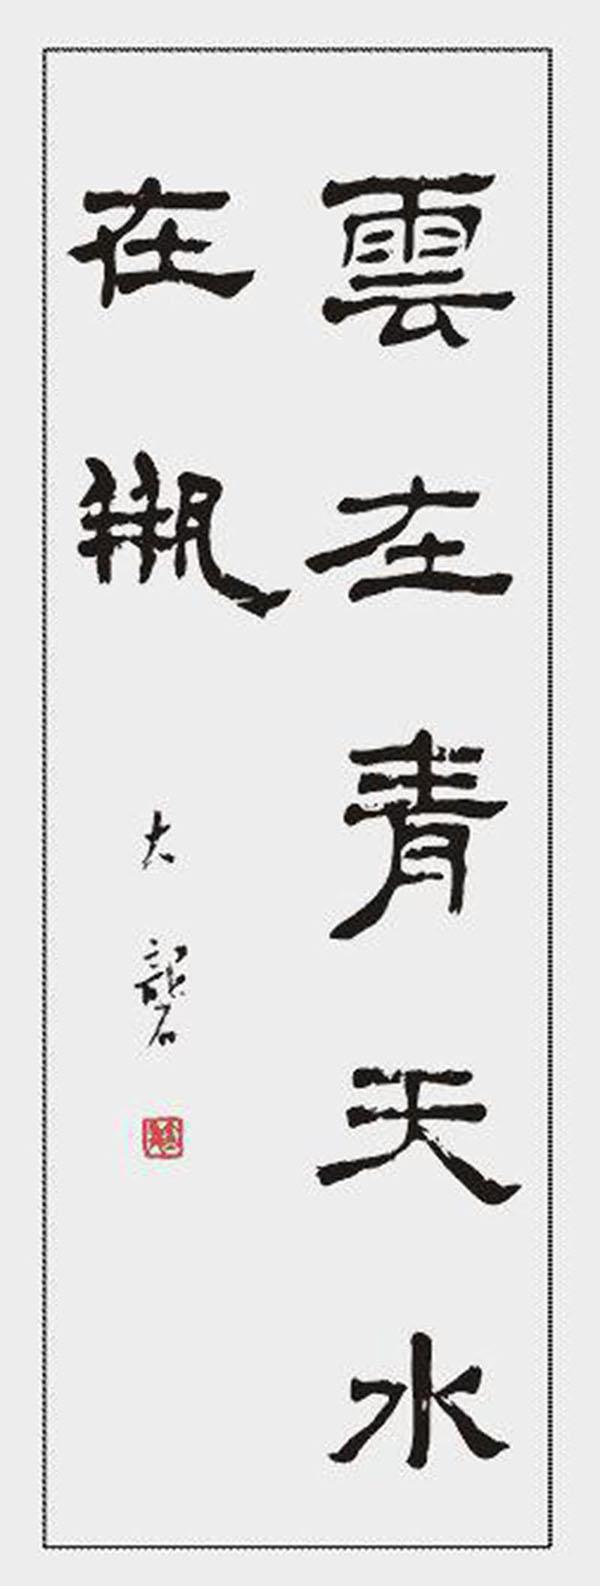 雲在青天水
在瓶
大